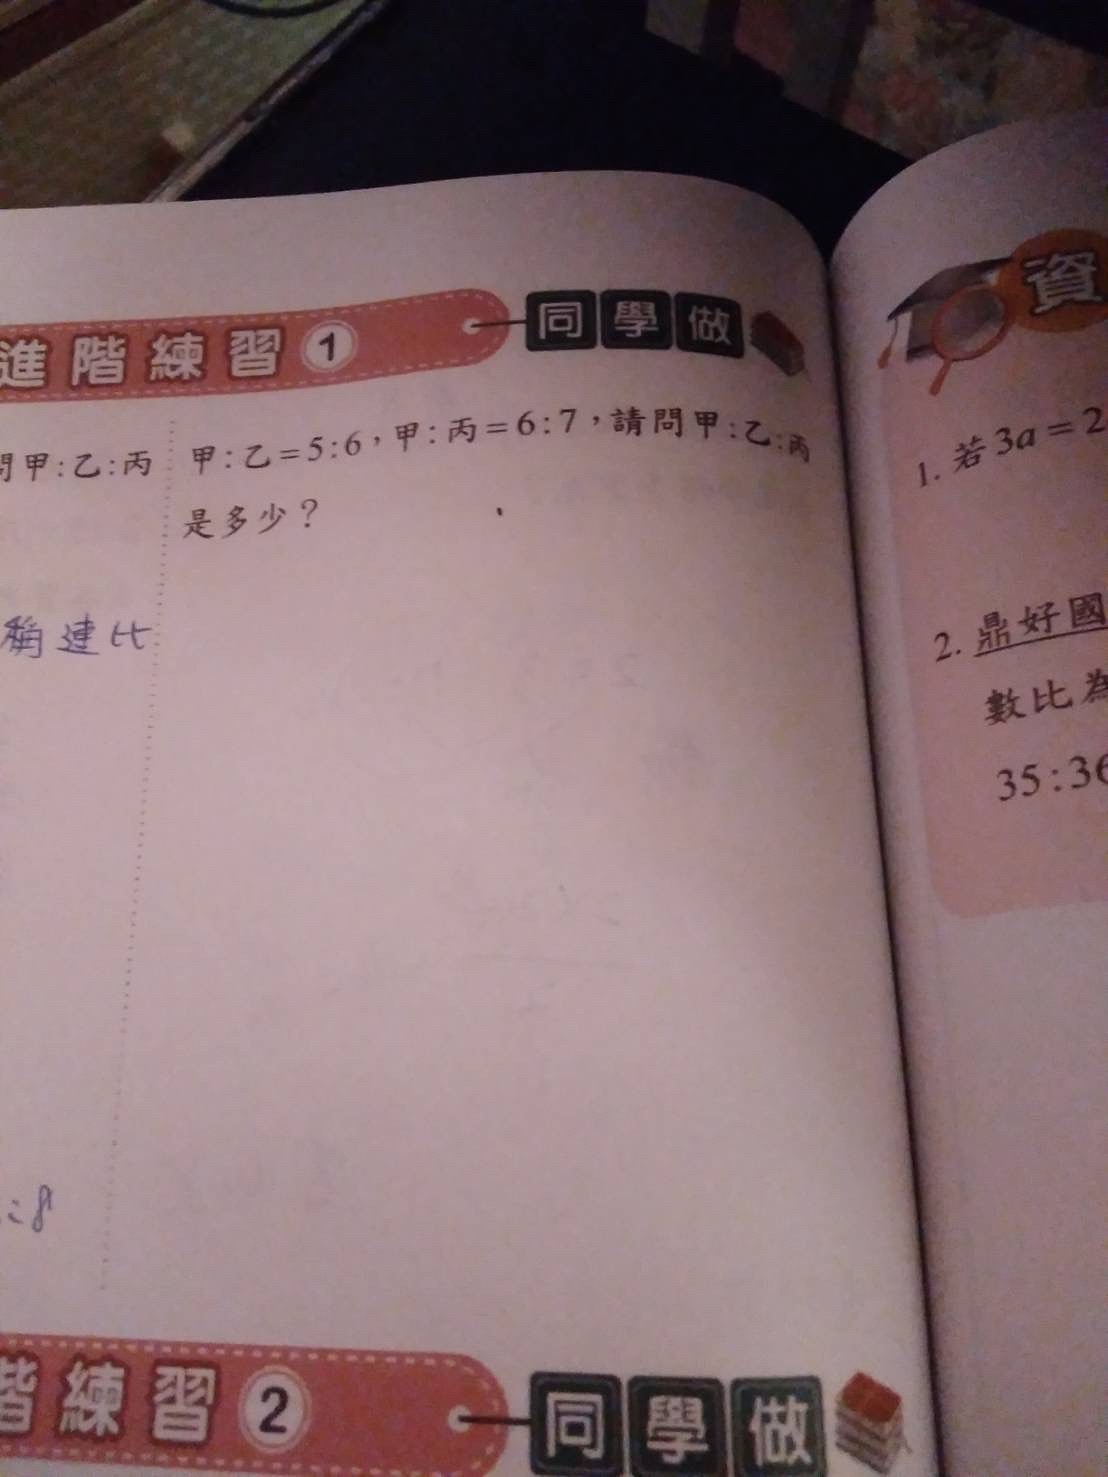 進階練習 1 同學做
問甲:乙:丙
甲:乙=5:6,甲:丙=6:7,請問甲:乙:丙
是多少?
稱連比
:8
階練習 2 同學做
資
1. 若3a=2
2. 鼎好國
數比為
35:36